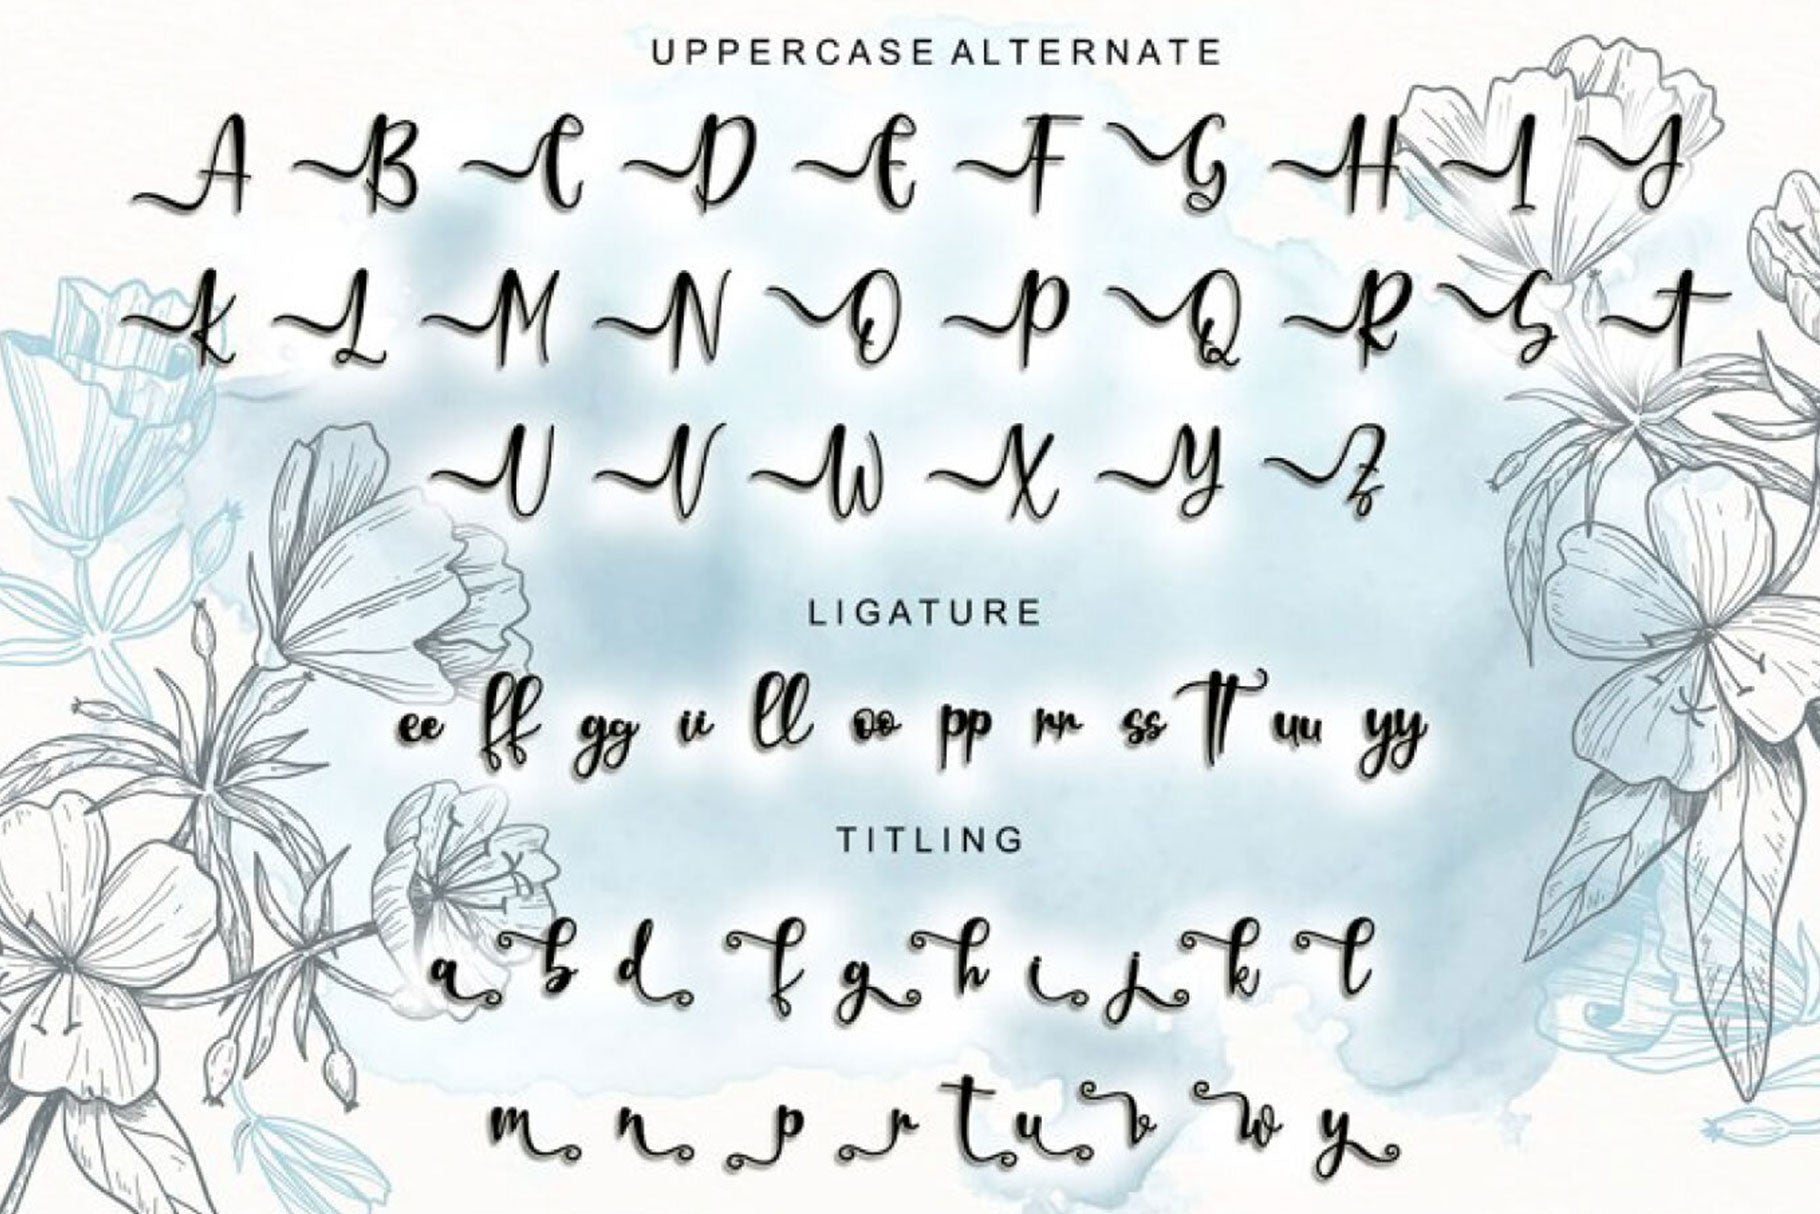 UPPERCASE ALTERNATE
A B C D E F G H I J
K L M N O P Q R S T
U V W X Y Z
LIGATURE
ee ff gg ii ll oo pp rr ss tt uu yy
TITLING
a b d f g h i j k l
m n p r t u v w y